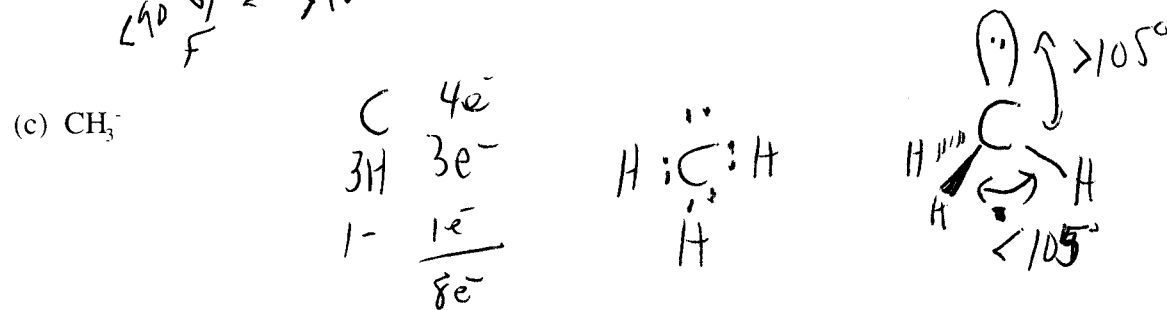 <90 F
(c) CH₃⁻
C 4e⁻
3H 3e⁻
1- 1e⁻
8e⁻
H : C : H
H
C
H H H
>105°
<105°